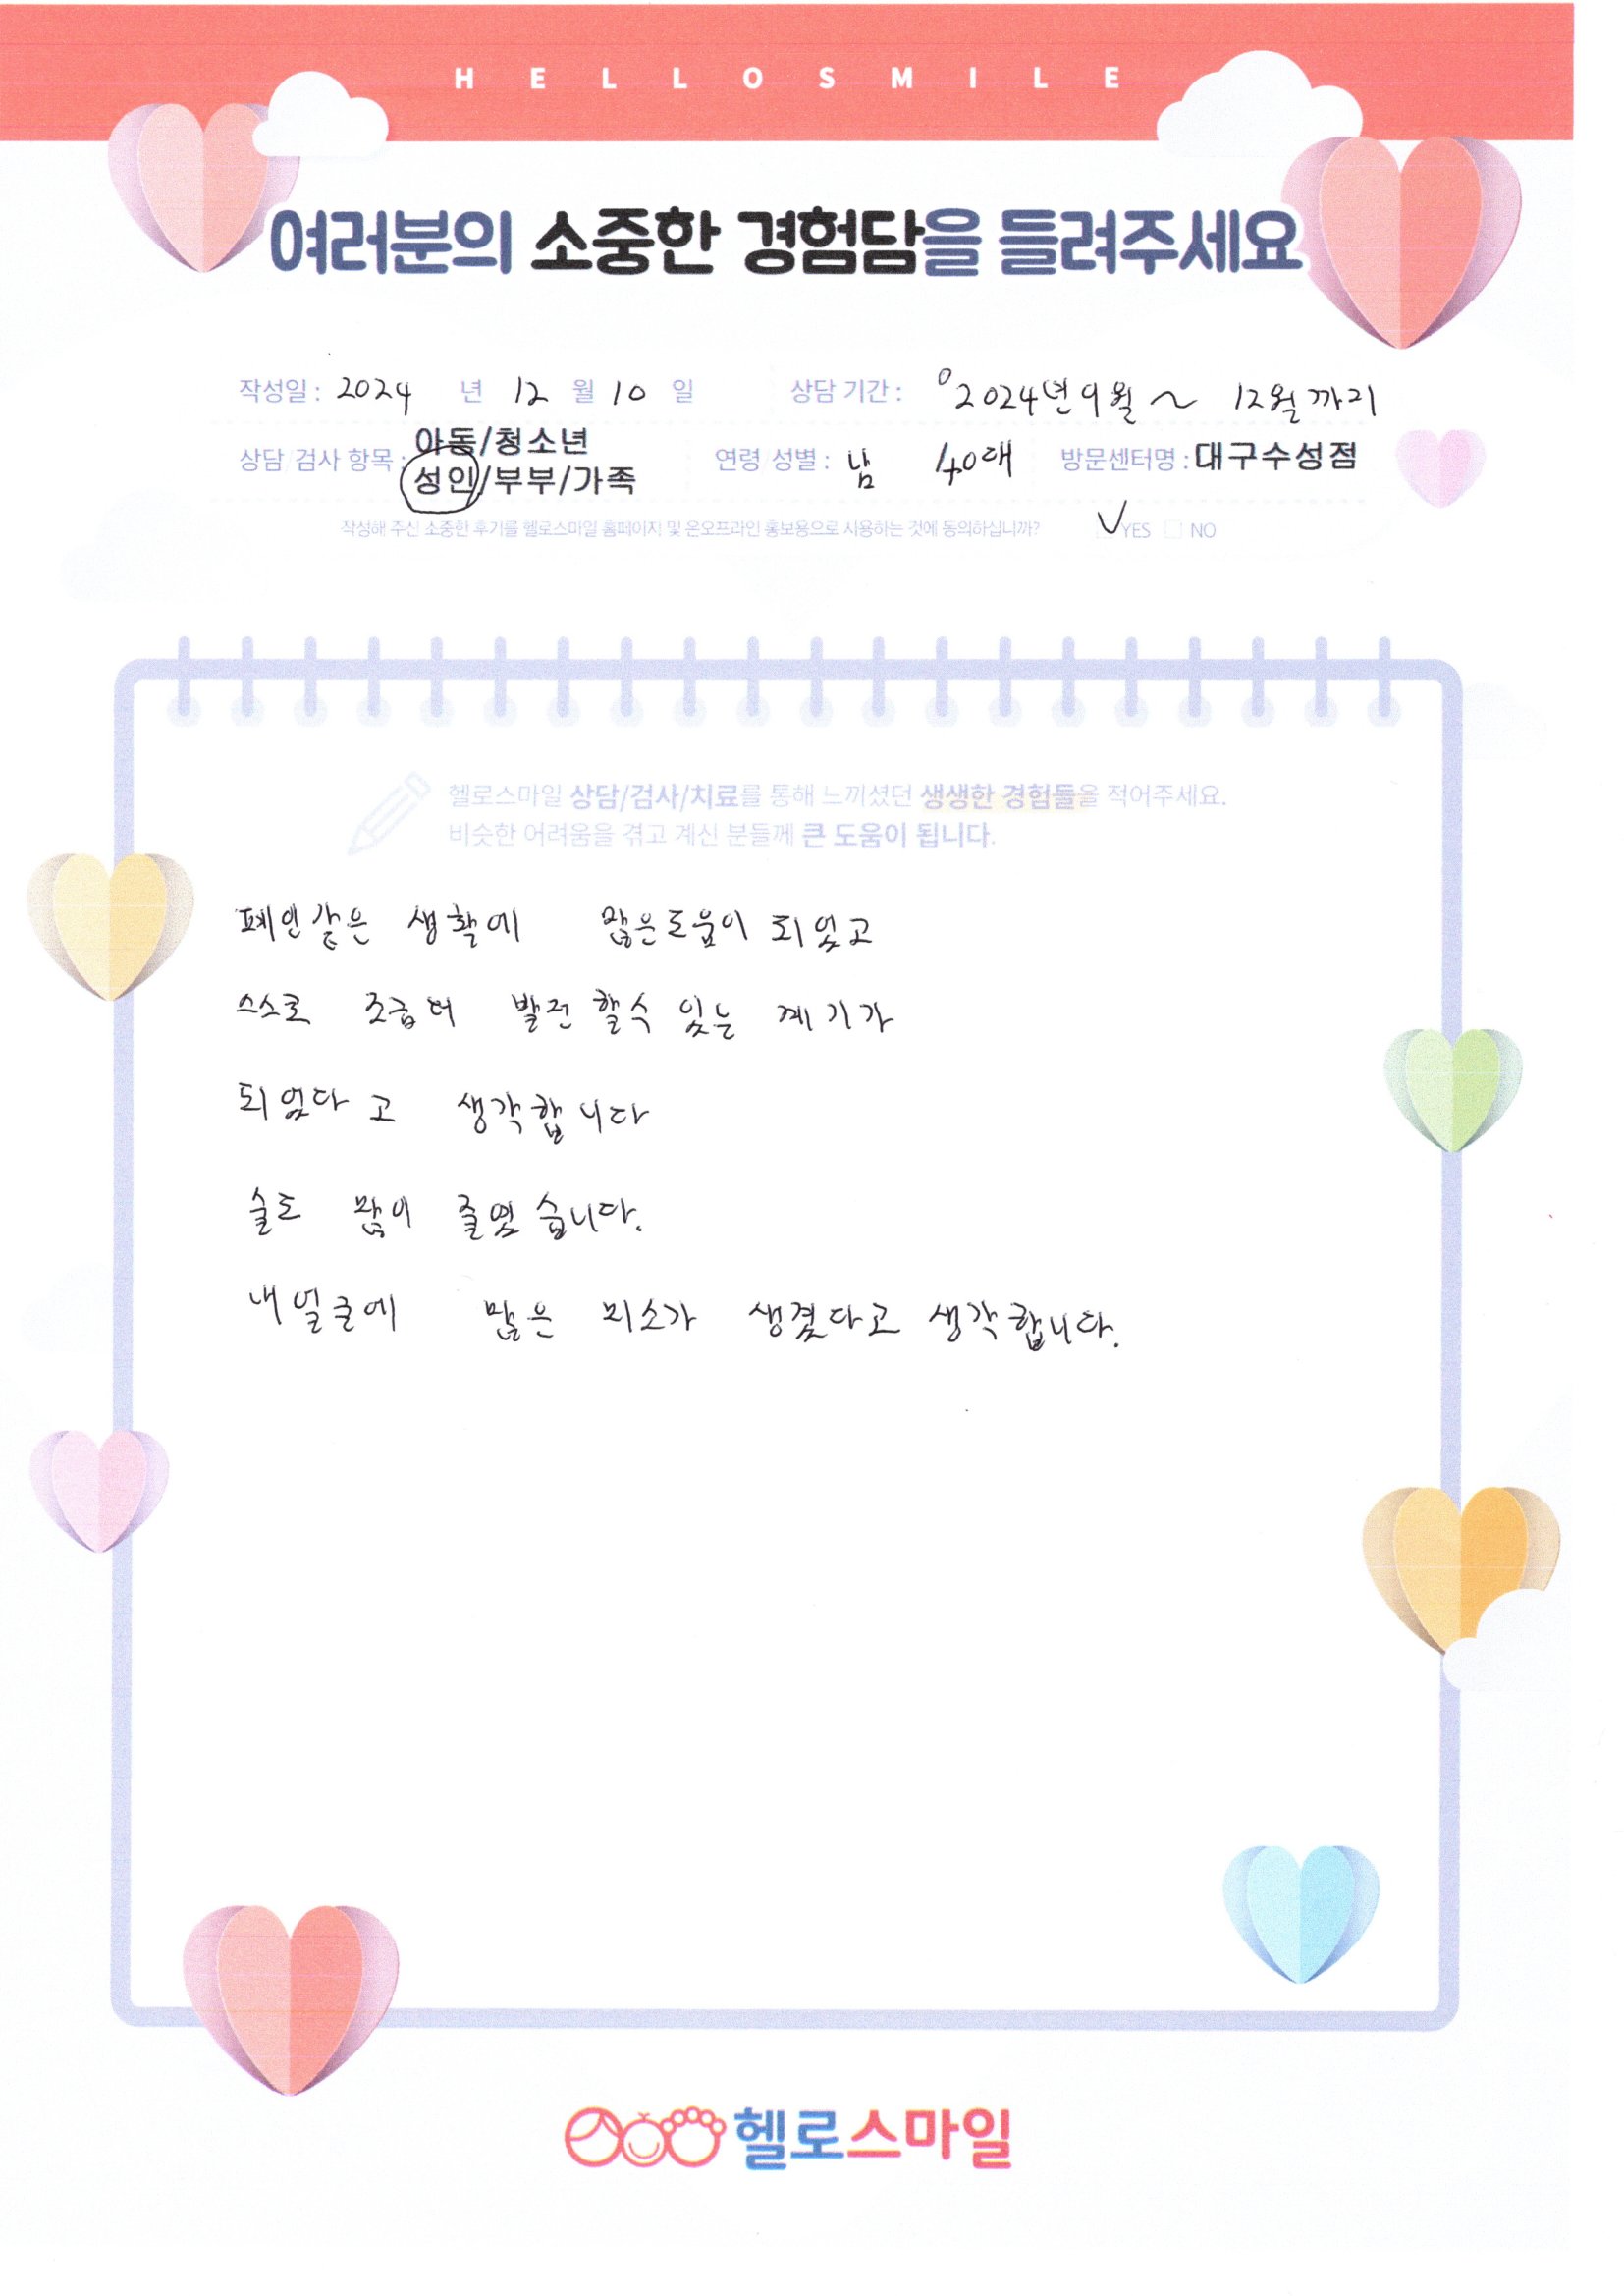 HELLOSMILE
여러분의 소중한 경험담을 들려주세요
작성일 : 2024 년 12 월 10 일 상담 기간 : 2024년 9월 ~ 12월까지
상담 검사 항목 : 아동/청소년
성인/부부/가족
연령 성별 : 남 40대 방문센터명 : 대구수성점
작성해 주신 소중한 후기를 헬로스마일 홈페이지 및 온오프라인 홍보용으로 사용하는 것에 동의하십니까? YES NO
헬로스마일 상담/검사/치료를 통해 느끼셨던 생생한 경험들을 적어주세요.
비슷한 어려움을 겪고 계신 분들께 큰 도움이 됩니다.
폐인같은 생활에 많은도움이 되었고
스스로 조금더 발전 할수 있는 계기가
되었다고 생각합니다
술도 많이 줄였습니다.
내얼굴에 많은 미소가 생겼다고 생각합니다.
헬로스마일